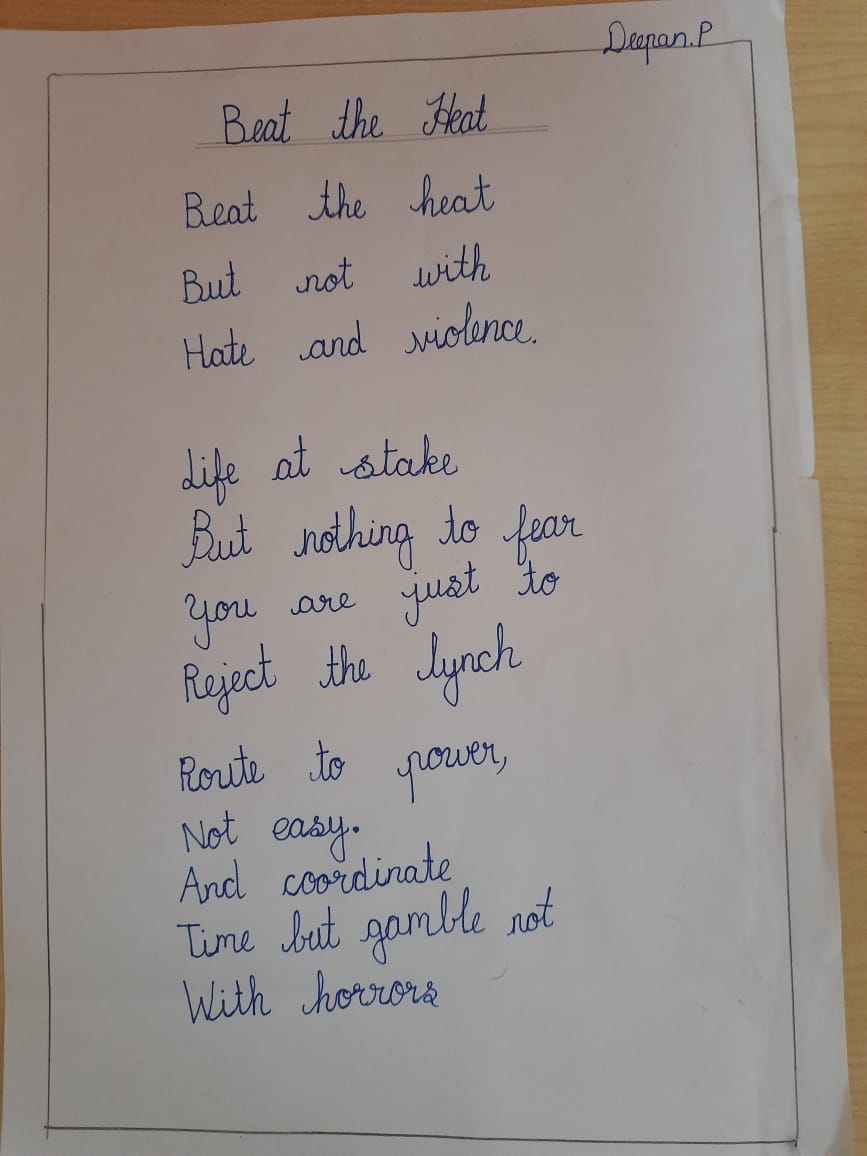 Deepan.P
Beat the Heat
Beat the heat
But not with
Hate and violence.
Life at stake
But nothing to fear
You are just to
Reject the lynch
Route to power,
Not easy.
And coordinate
Time but gamble not
With horrors